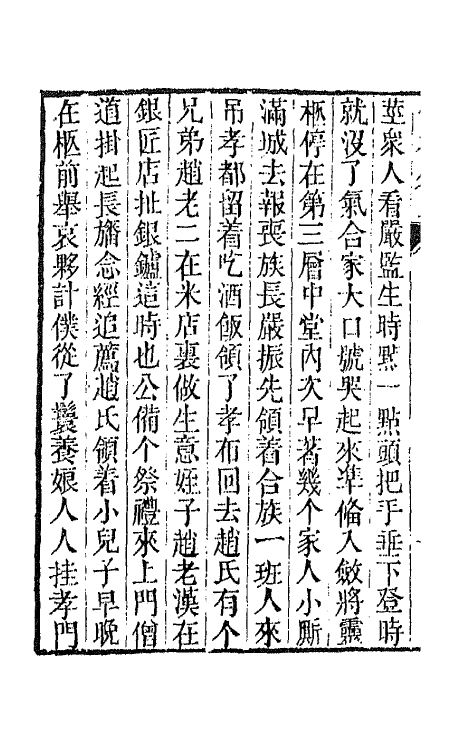 莖衆人看嚴監生時點一點頭把手垂下登時
就沒了氣合家大口號哭起來準備入殮將靈
柩停在第三層中堂內次早著幾个家人小厮
滿城去報喪族長嚴振先領着合族一班人來
吊孝都留着吃酒飯領了孝布回去趙氏有个
兄弟趙老二在米店裏做生意姪子趙老漢在
銀匠店扯銀鑪這時也公備个祭禮來上門僧
道掛起長旛念經追薦趙氏領着小兒子早晚
在柩前舉哀夥計僕從丫鬟養娘人人挂孝門